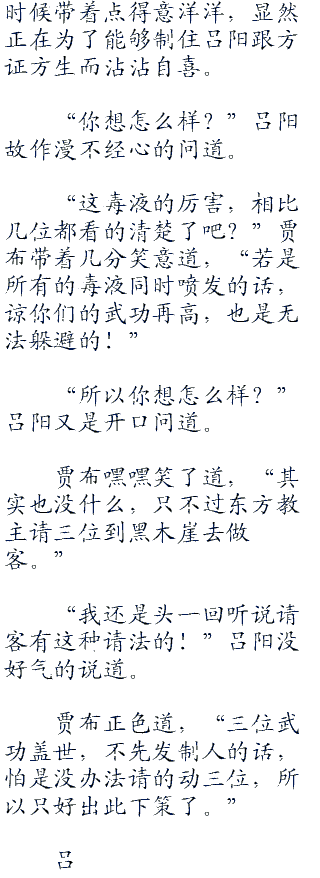 时候带着点得意洋洋，显然
正在为了能够制住吕阳跟方
证方生而沾沾自喜。
“你想怎么样？”吕阳
故作漫不经心的问道。
“这毒液的厉害，相比
几位都看的清楚了吧？”贾
布带着几分笑意道，“若是
所有的毒液同时喷发的话，
谅你们的武功再高，也是无
法躲避的！”
“所以你想怎么样？”
吕阳又是开口问道。
贾布嘿嘿笑了道，“其
实也没什么，只不过东方教
主请三位到黑木崖去做
客。”
“我还是头一回听说请
客有这种请法的！”吕阳没
好气的说道。
贾布正色道，“三位武
功盖世，不先发制人的话，
怕是没办法请的动三位，所
以只好出此下策了。”
吕